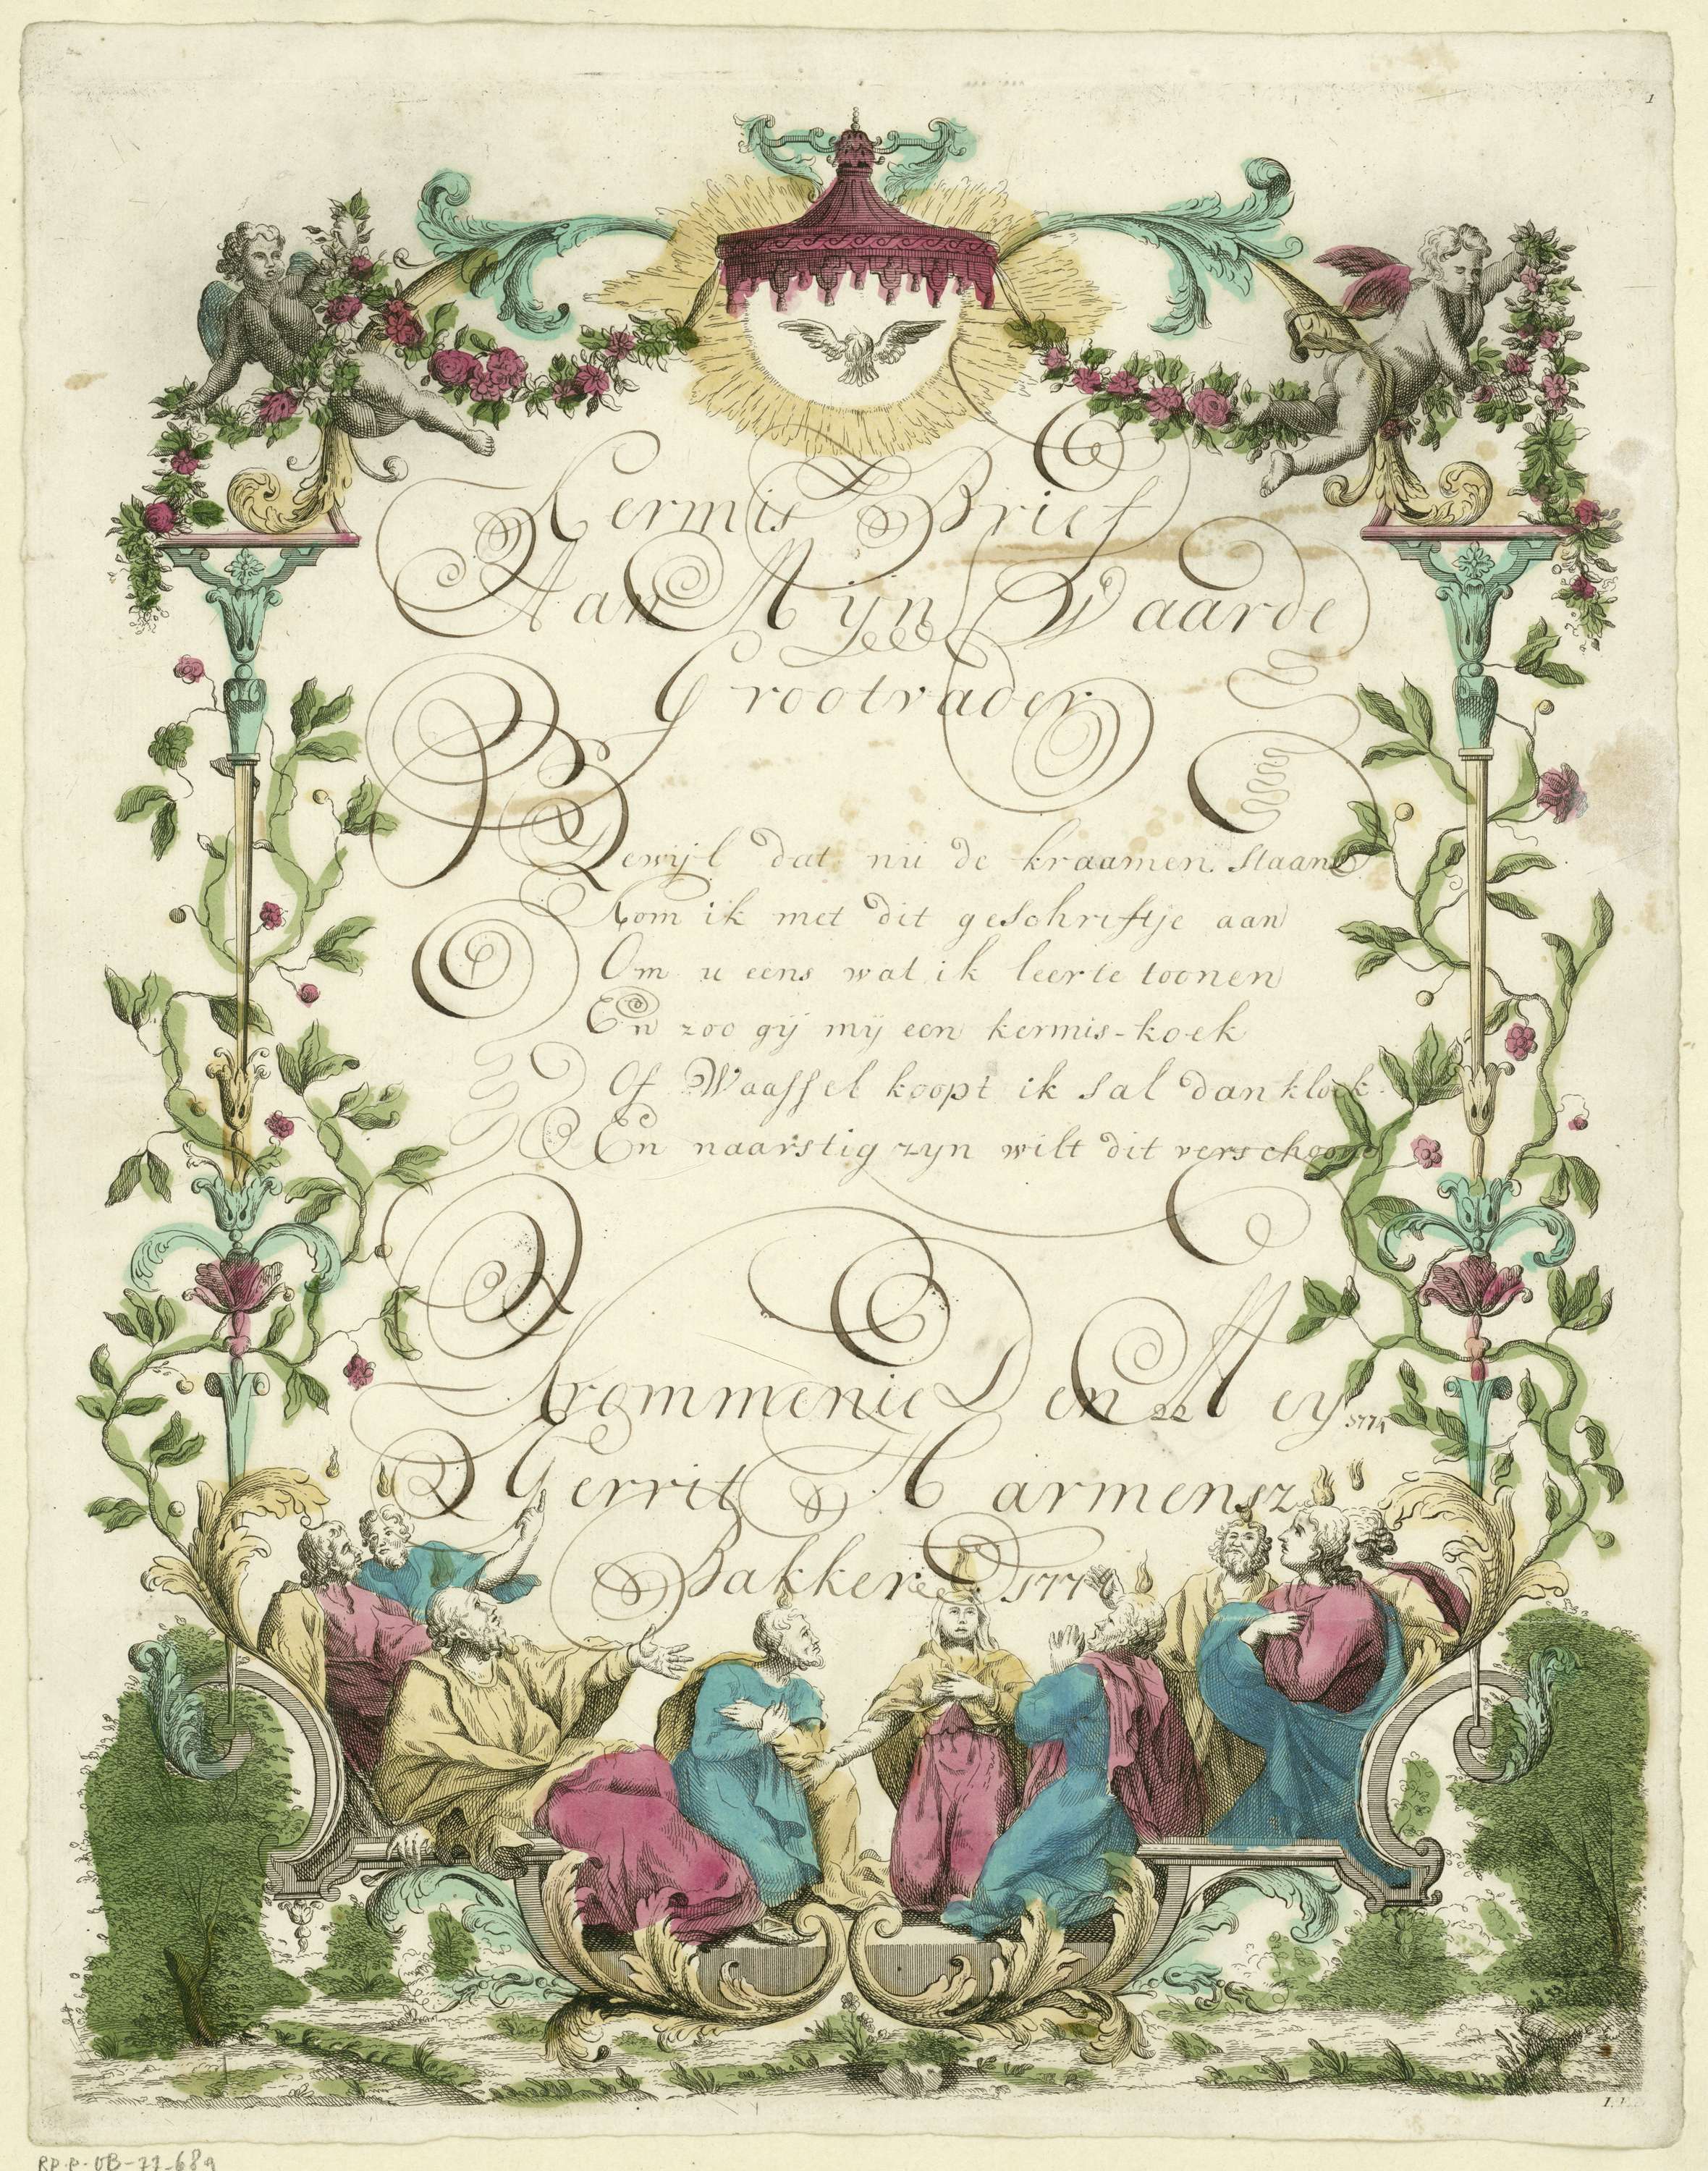 1
Kermis Brief
Aan Mijn Waarde
Grootvader
Dewijl dat nu de kraamen staan
Kom ik met dit geschriftje aan
Om u eens wat ik leerte toonen
En zoo gij mij een kermis-koek
Of Waaffel koopt ik sal dan kloek
En naarstig zyn wilt dit verschoon
Krommenie Den 22 Mey 1775
Gerrit Harmensz
Bakker 177
RP-P-OB-77-689